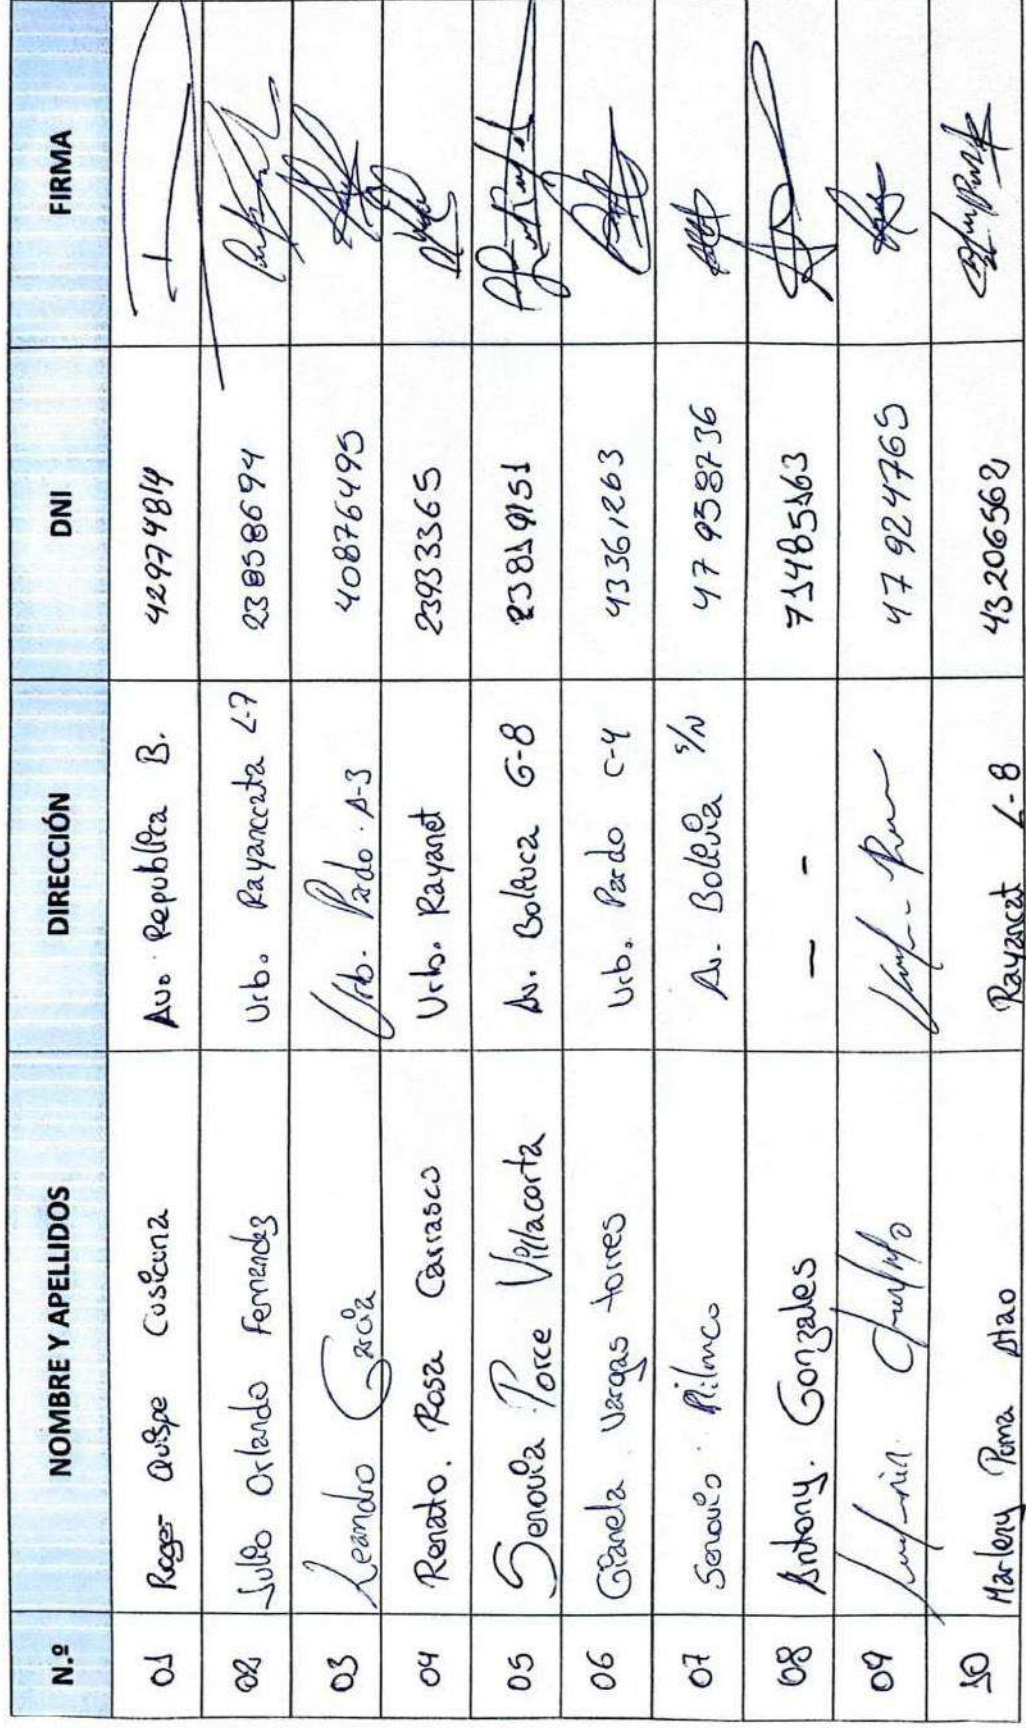 N.º NOMBRE Y APELLIDOS DIRECCIÓN DNI FIRMA
01 Roger Quispe Cusicuna Av. Republica B. 42974814
02 Julio Orlando Fernandez Urb. Rayanccata L-7 23858694
03 Leandro Garcia Urb. Pardo. A-3 40876495
04 Renato. Rosa Carrasco Urb. Rayanet 23933365
05 Senovia Porce Villacorta Av. Boliuca G-8 23819151
06 Gianela Vargas torres Urb. Pardo C-4 43361263
07 Senovio Av. Bolivia S/N 47958736
08 Antony. Gonzales — - 71485163
09 47924765
10 Marleny Puma Rayancat L-8 43206562